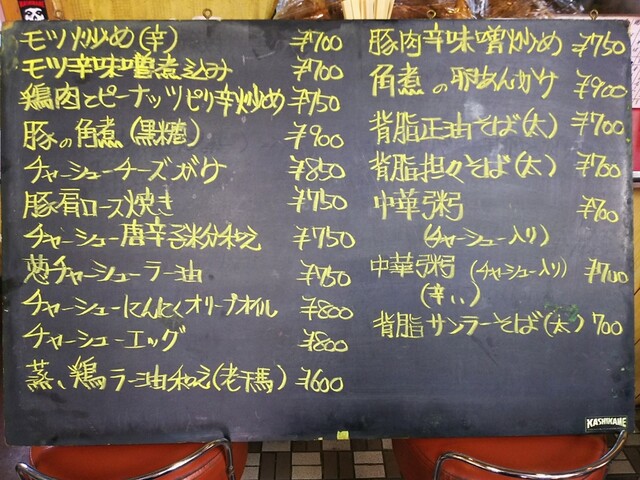 モツ炒め(辛) ¥700
モツ辛味噌煮込み ¥700
鶏肉とピーナッツピリ辛炒め ¥750
豚の角煮(黒糖) ¥900
チャーシューチーズがけ ¥850
豚肩ロース焼き ¥750
チャーシュー唐辛子粉和え ¥750
葱チャーシューラー油 ¥750
チャーシューにんにくオリーブオイル ¥800
チャーシューエッグ ¥800
蒸し鶏ラー油和え(老干媽) ¥600
豚肉辛味噌炒め ¥750
角煮の卵あんかけ ¥900
背脂正油そば(太) ¥700
背脂担々そば(太) ¥700
中華粥 ¥700
(チャーシュー入り)
中華粥(チャーシュー入り) ¥700
(辛い)
背脂サンラーそば(太) 700
KASHIKANE